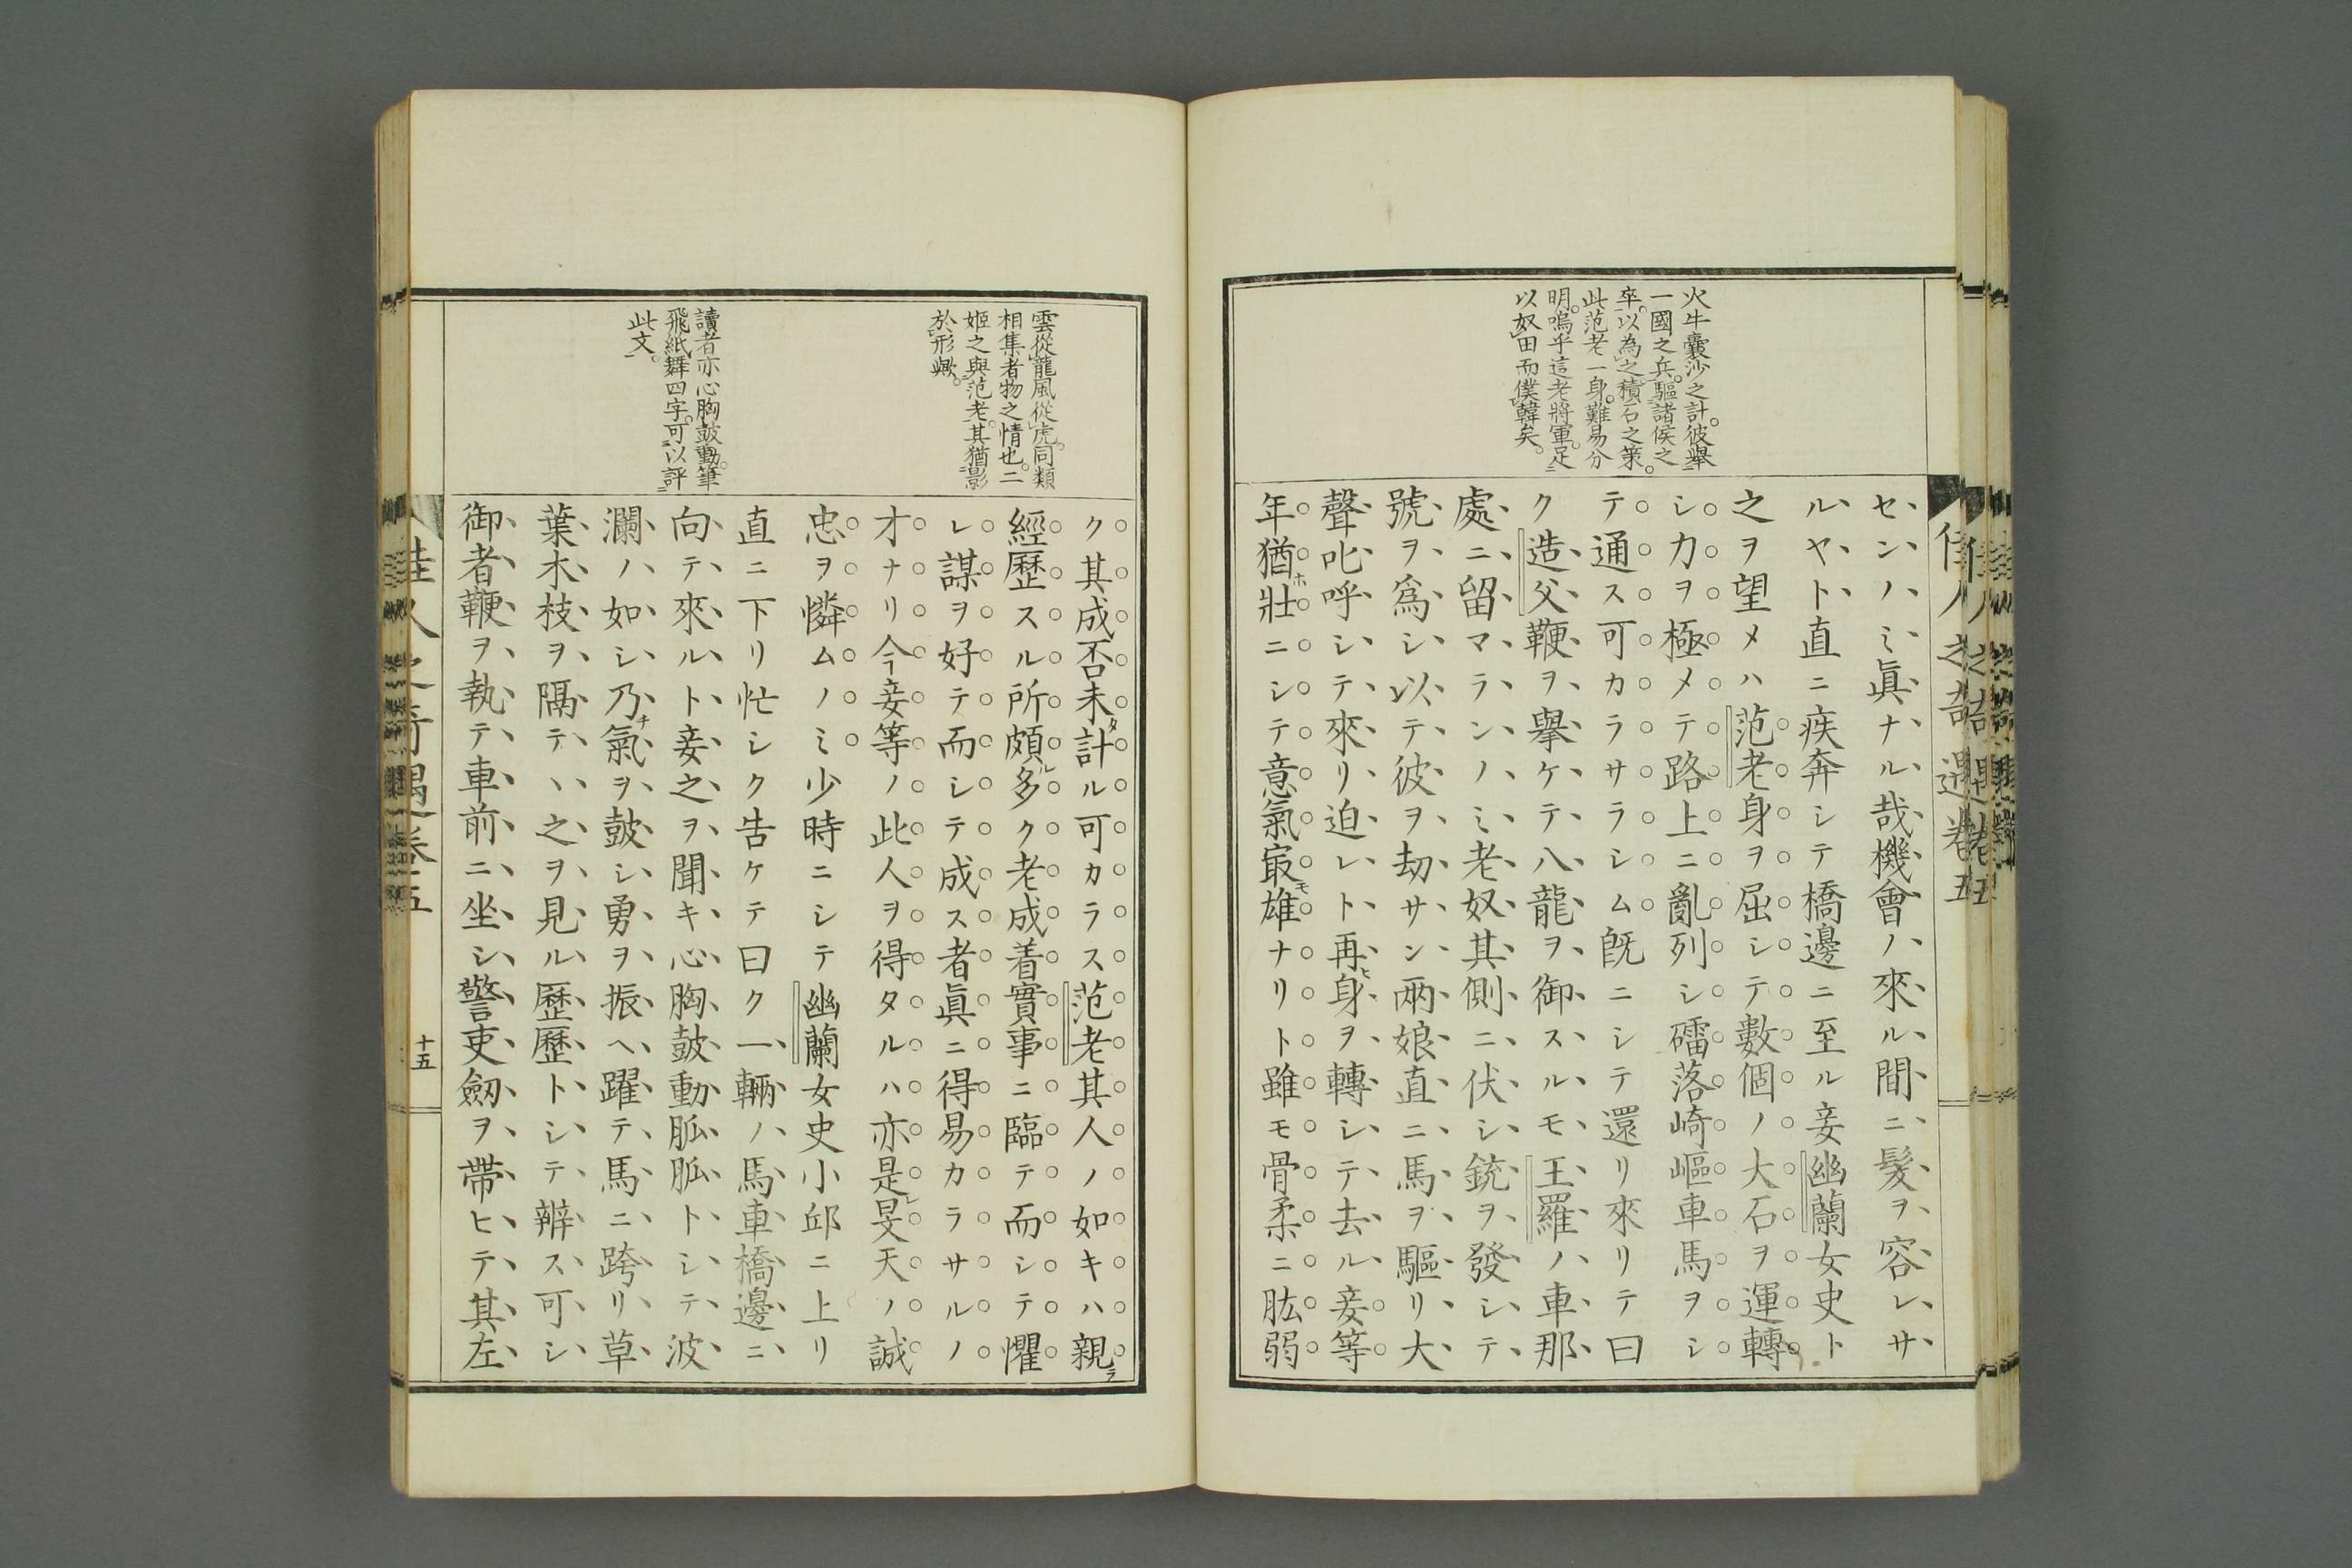 火牛囊沙之計。彼舉
一國之兵。驅諸侯之
卒。以為之積石之策。
此范老一身。難易分
明。嗚乎這老將軍。足
以奴田而僕韓矣。
セン、ノミ眞ナル哉機會ノ來ル間ニ髮ヲ容レサ
ルヤト直ニ疾奔シテ橋邊ニ至ル妾幽蘭女史ト
之ヲ望メハ范老身ヲ屈シテ數個ノ大石ヲ運轉
シ力ヲ極メテ路上ニ亂列シ礌落崎嶇車馬ヲシ
テ通ス可カラサラシム旣ニシテ還リ來リテ曰
ク造父鞭ヲ擧ケテ八龍ヲ御スルモ王羅ノ車那
處ニ留マランノミ老奴其側ニ伏シ銃ヲ發シテ
號ヲ爲シ以テ彼ヲ劫サン兩娘直ニ馬ヲ驅リ大
聲叱呼シテ來リ迫レト再ヒ身ヲ轉シテ去ル妾等
年猶ホ壯ニシテ意氣㝡モ雄ナリト雖モ骨柔ニ肱弱
佳人之奇遇卷五
雲從龍風從虎。同類
相集者物之情也。二
姬之與范老。其猶影
於形歟。
讀者亦心胸鼓動。筆
飛紙舞四字。可以評
此文。
ク其成否未タ計ル可カラス范老其人ノ如キハ親ラ
經歷スル所頗ル多ク老成着實事ニ臨テ而シテ懼
レ謀ヲ好テ而シテ成ス者眞ニ得易カラサルノ
才ナリ今妾等ノ此人ヲ得タルハ亦是レ旻天ノ誠
忠ヲ憐ムノミ少時ニシテ幽蘭女史小邱ニ上リ
直ニ下リ忙シク告ケテ曰ク一輛ノ馬車橋邊ニ
向テ來ルト妾之ヲ聞キ心胸鼓動脈脈トシテ波
瀾ノ如シ乃チ氣ヲ鼓シ勇ヲ振ヘ躍テ馬ニ跨リ草
葉木枝ヲ隔テヽ之ヲ見ル歷歷トシテ辨ス可シ
御者鞭ヲ執テ車前ニ坐シ警吏劔ヲ帶ヒテ其左
佳人之奇遇卷五
十五